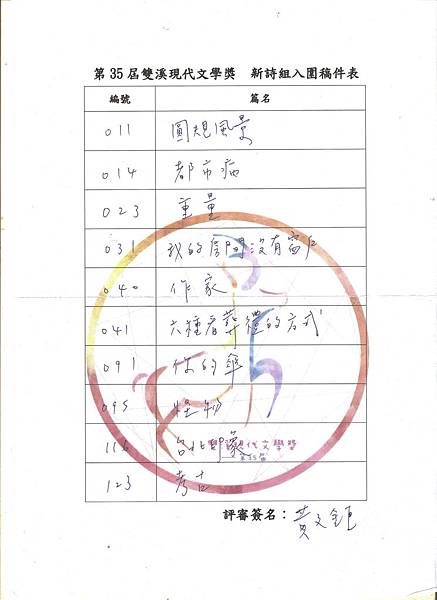 第 35 屆雙溪現代文學獎 新詩組入圍稿件表
編號 篇名
011 圓規風景
014 都市病
023 重量
031 我的房間沒有窗戶
040 作家
041 六種看葬禮的方式
091 你的傘
095 怪物
116 台北印象
123 考古
雙溪現代文學獎
第35屆
評審簽名：黃文鉅